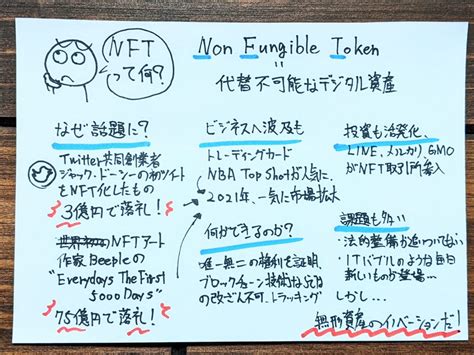 NFT
って何?
Non Fungible Token
=
代替不可能なデジタル資産
なぜ話題に?
Twitter共同創業者
ジャック・ドーシーの初ツイート
をNFT化したもの
3億円で落札!
NFTアート
作家Beepleの
"Everydays The First
5000 Days"
75億円で落札!
ビジネスへ波及も
トレーディングカード
NBA Top Shotが人気に、
2021年、一気に市場拡大
何ができるのか?
唯一無二の権利を証明、
ブロックチェーン技術
改ざん不可、トラッキング
投資も活発化、
LINE、メルカリ、GMO
がNFT取引所参入
課題も多い
・法的整備が追いついてない
・ITバブルのような毎日
新しいものが登場…
しかし…
無形資産のイノベーションだ!